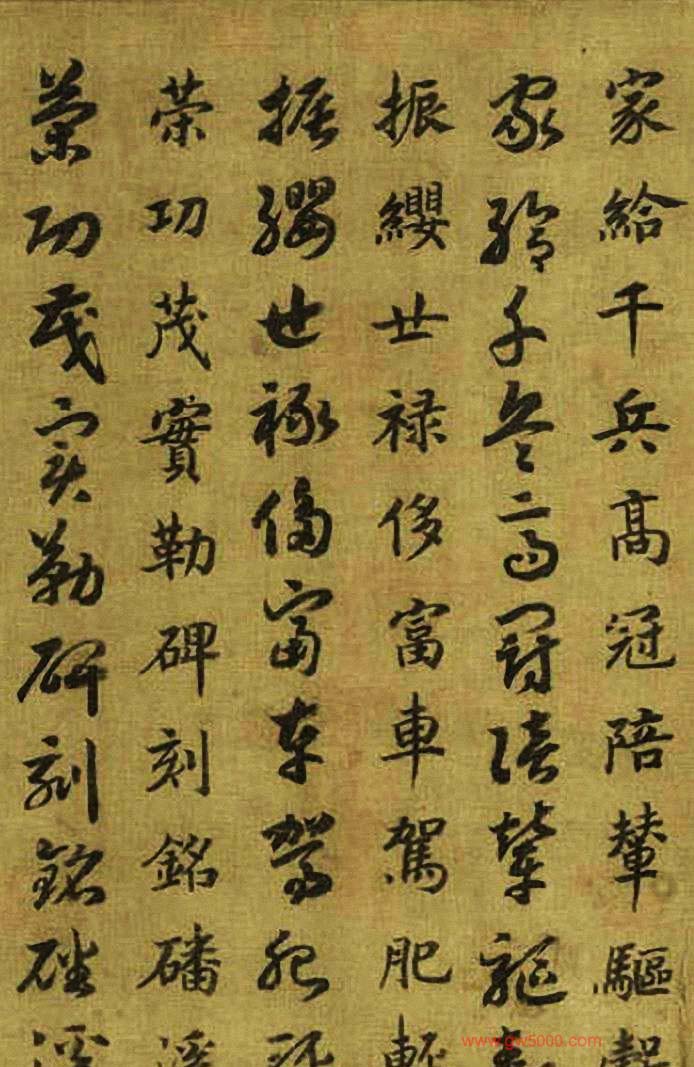 家給千兵高冠陪輦驅轂
家給千兵高冠陪輦驅轂
振纓世禄侈富車駕肥輕
振纓世禄侈富車駕肥輕
策功茂實勒碑刻銘磻溪
策功茂實勒碑刻銘磻溪
www.gw5000.com